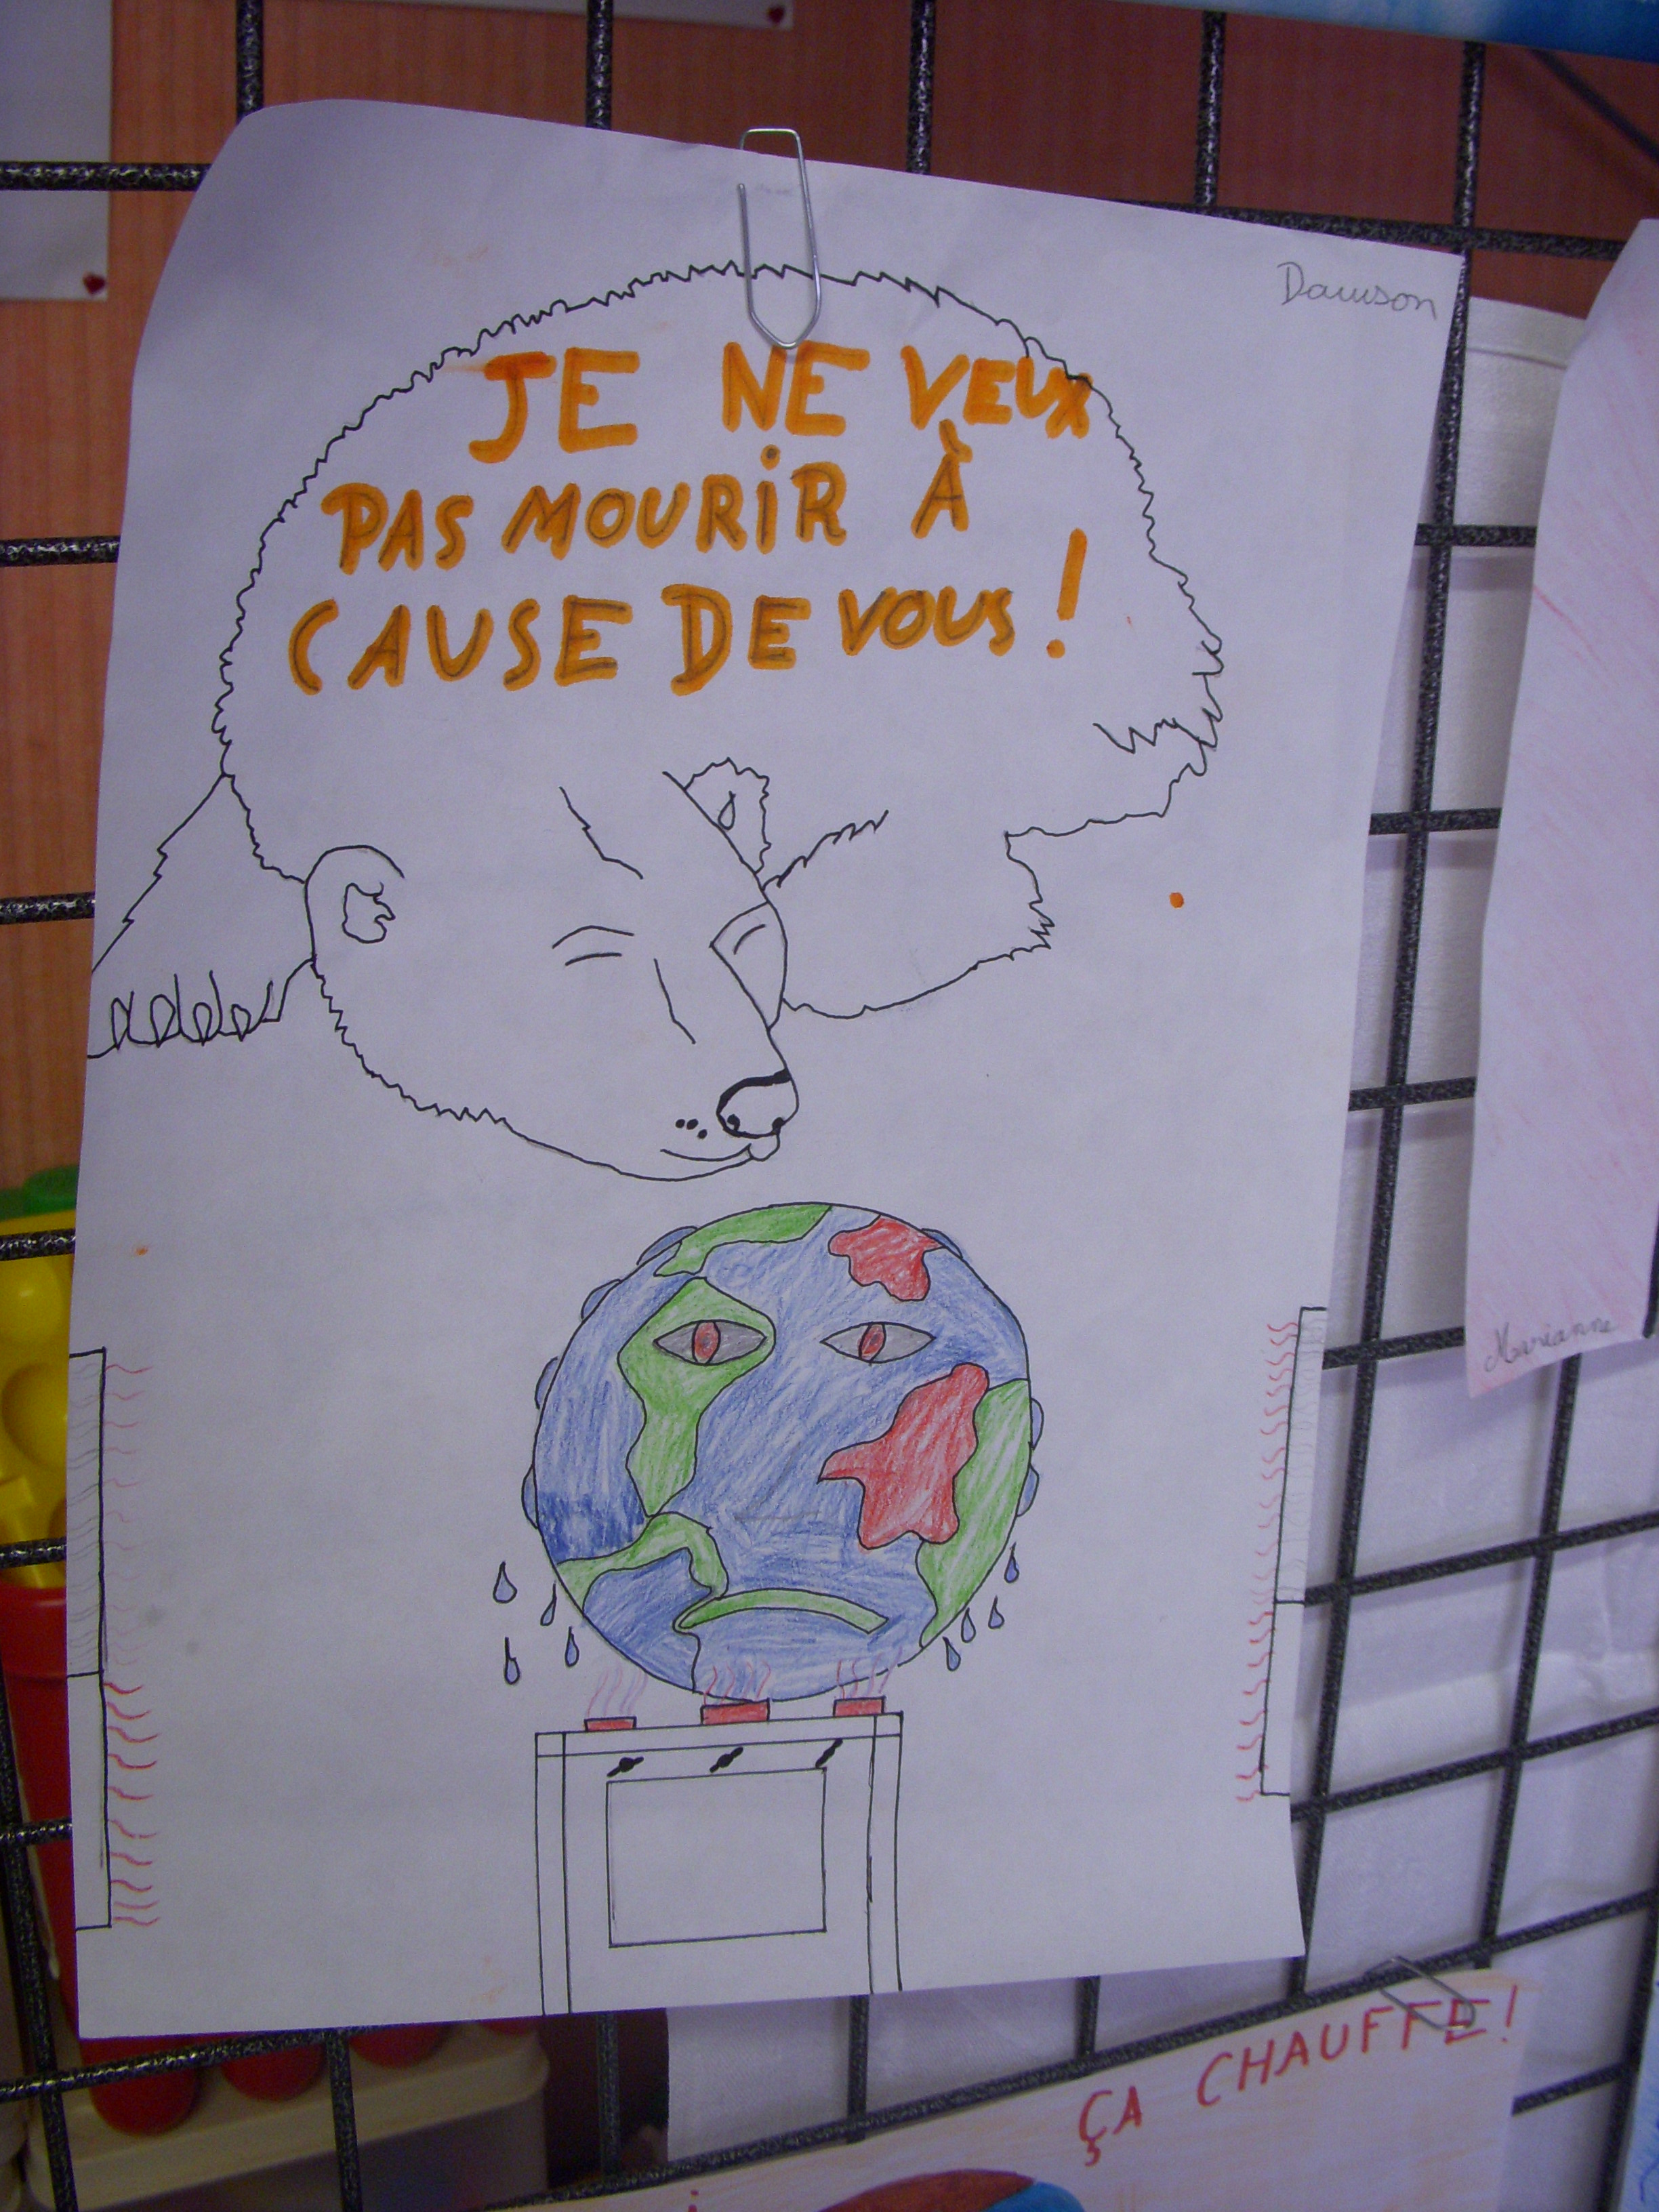 Dawson
JE NE VEUX
PAS MOURiR À
CAUSE DE VOUS !
Marianne
ÇA CHAUFFE!